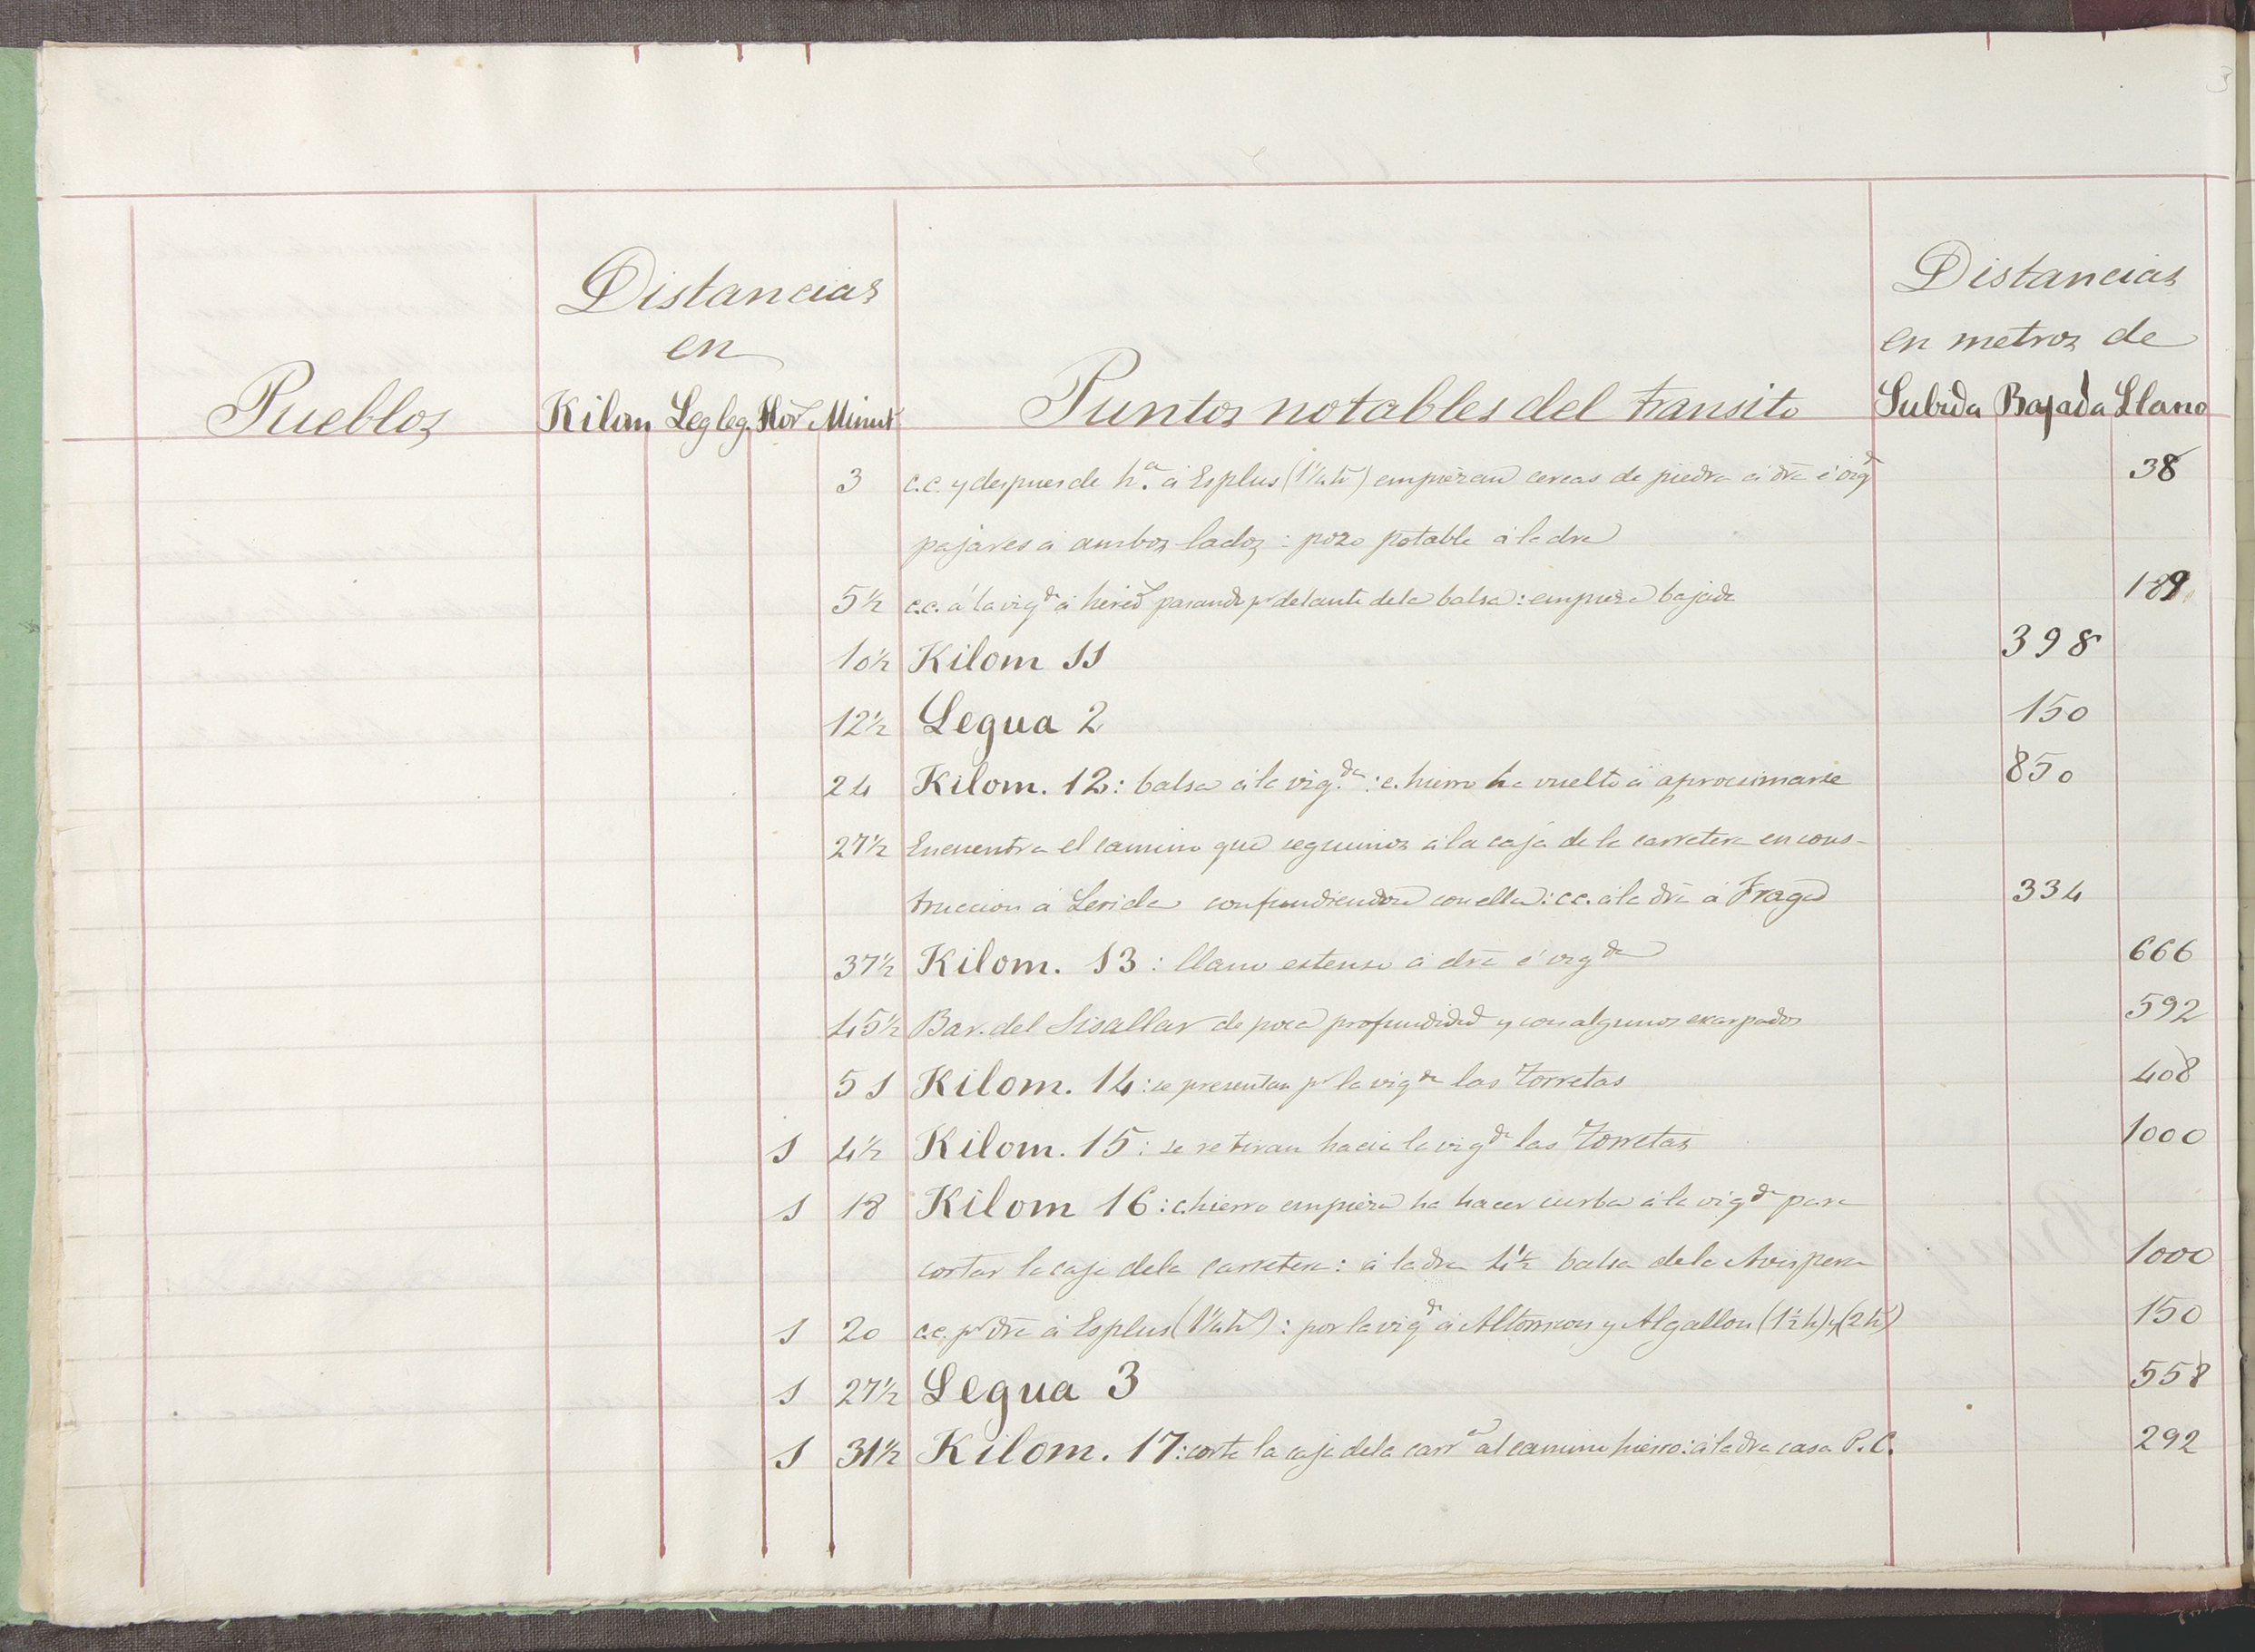 3
Distancias
en
Distancias
en metros de
Pueblos Kilom Leg leg. Hor.s Minut.s Puntos notables del transito Subida Bajada Llano
3 c.c. y despues de h.ª á Esplus (1¼ h) empiezan cercas de piedra á dra é izq.da 38
pajares á ambos lados: pozo potable á la dra
5½ c.c. á la izq.da á hered.s pasando p.r delante de la balsa: empieza bajada 189
10½ Kilom 11 398
12½ Legua 2 150
24 Kilom. 12: balsa á la izq.da: c. hierro ha vuelto á aprocsimarse 850
27½ Encuentra el camino que seguimos á la caja de la carretera en cons-
truccion á Lerida confundiendose con ella: c.c. á la dra á Fraga 334
37½ Kilom. 13: llano estenso á dra é izq.da 666
45½ Bar. del Sisallar de poca profundidad y con algunos escarpados 592
51 Kilom. 14: se presentan p.r la izq.da las Torretas 408
1 4½ Kilom. 15: se retiran hacia la izq.da las Torretas 1000
1 18 Kilom 16: c. hierro empieza ha hacer curba á la izq.da para
cortar la caja de la carretera: á la dra 4½ balsa de la Avispera 1000
1 20 c.c. p.r dra á Esplus (1¼ h): por la izq.da á Altorricon y Algallon (1½ h) y (2 h) 150
1 27½ Legua 3 558
1 31½ Kilom. 17: corta la caja de la carr.a al camino hierro: á la dra casa P.C. 292